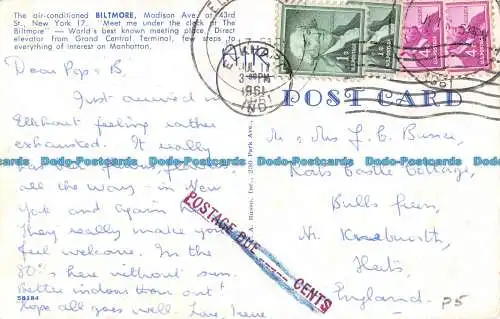 The air-conditioned BILTMORE, Madison Ave. at 43rd
St., New York 17. "Meet me under the clock at The
Biltmore" — World's best known meeting place. Direct
elevator from Grand Central Terminal, few steps to
everything of interest on Manhattan.
Dear Pops & B.
Just arrived in
Elkhart feeling rather
exhausted. It really
all the way - in New
York and again here
They really make you
feel welcome. In the
80's here without sun.
Better indoors than out!
Hope all goes well. Love, Irene
58284
ELKHART
JUL 17
3-PM
1961
IND.
1¢ U.S. POSTAGE
4¢ U.S. POSTAGE
POST CARD
POSTAGE DUE CENTS
Mr & Mrs J. E.
Cottage,
Bulls Green,
Nr. Knebworth,
Herts,
England.
P5
Dodo-Postcards Dodo-Postcards Dodo-Postcards Dodo-Postcards Dodo-Postcards Dodo-Postcards